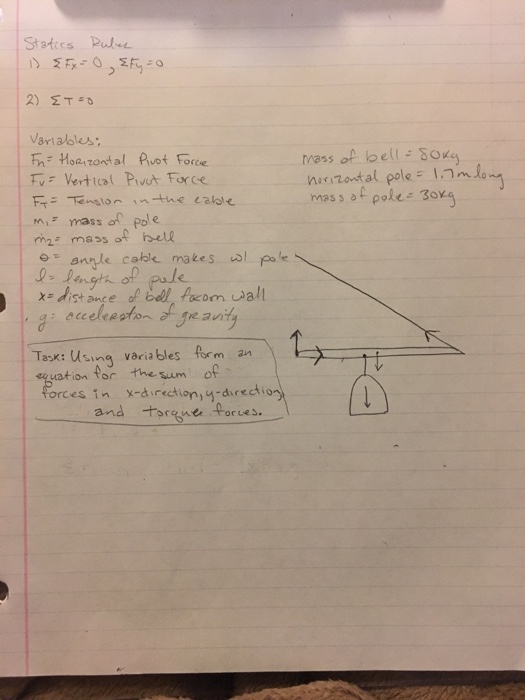 Statics Rules
1) ΣFx=0, ΣFy=0
2) ΣT=0
Variables:
Fh= Horizontal Pivot Force
Fv= Vertical Pivot Force
FT= Tension in the cable
m₁= mass of pole
m₂= mass of bell
θ= angle cable makes w/ pole
l= length of pole
x= distance of bell from wall
g= acceleration of gravity
mass of bell = 80kg
horizontal pole = 1.7m long
mass of pole = 30kg
Task: Using variables form an
equation for the sum of
forces in x-direction, y-direction,
and torque forces.